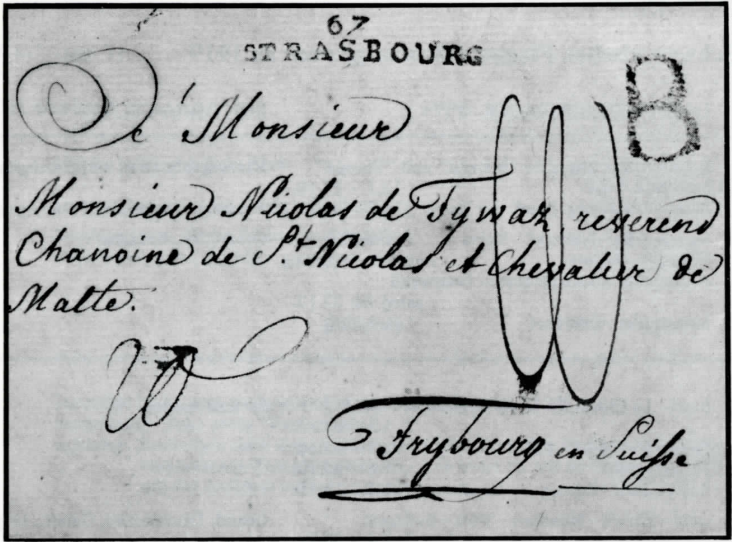 67
STRASBOURG
B
à Monsieur
Monsieur Nicolas de Tywaz reverend
Chanoine de St. Nicolas et Chevalier de
Malte.
Frybourg en Suisse